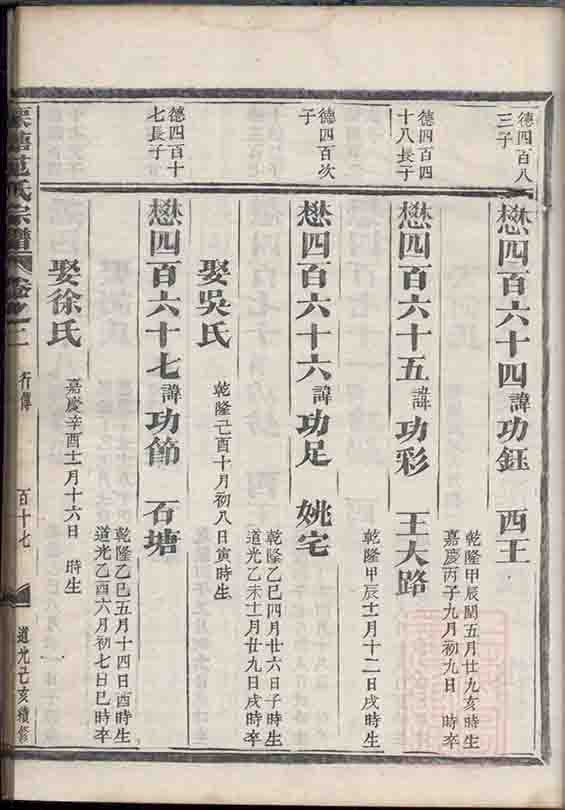 德四百八
三子
懋四百六十四諱功鈺 西王
乾隆甲辰閏五月廿九亥時生
嘉慶丙子九月初九日 時卒
德四百四
十八長子
懋四百六十五諱功彩 王大路
乾隆甲辰十二月十二日戌時生
德四百次
子
懋四百六十六諱功足 姚宅
乾隆乙巳四月廿六日子時生
道光乙未十一月廿九日戌時卒
娶吳氏
乾隆己酉十月初八日寅時生
德四百十
七長子
懋四百六十七諱功節 石塘
乾隆乙巳五月十四日酉時生
道光乙酉六月初七日巳時卒
娶徐氏
嘉慶辛酉十一月十六日 時生
范氏宗譜 卷之二
行傳
百十七
道光己亥續修